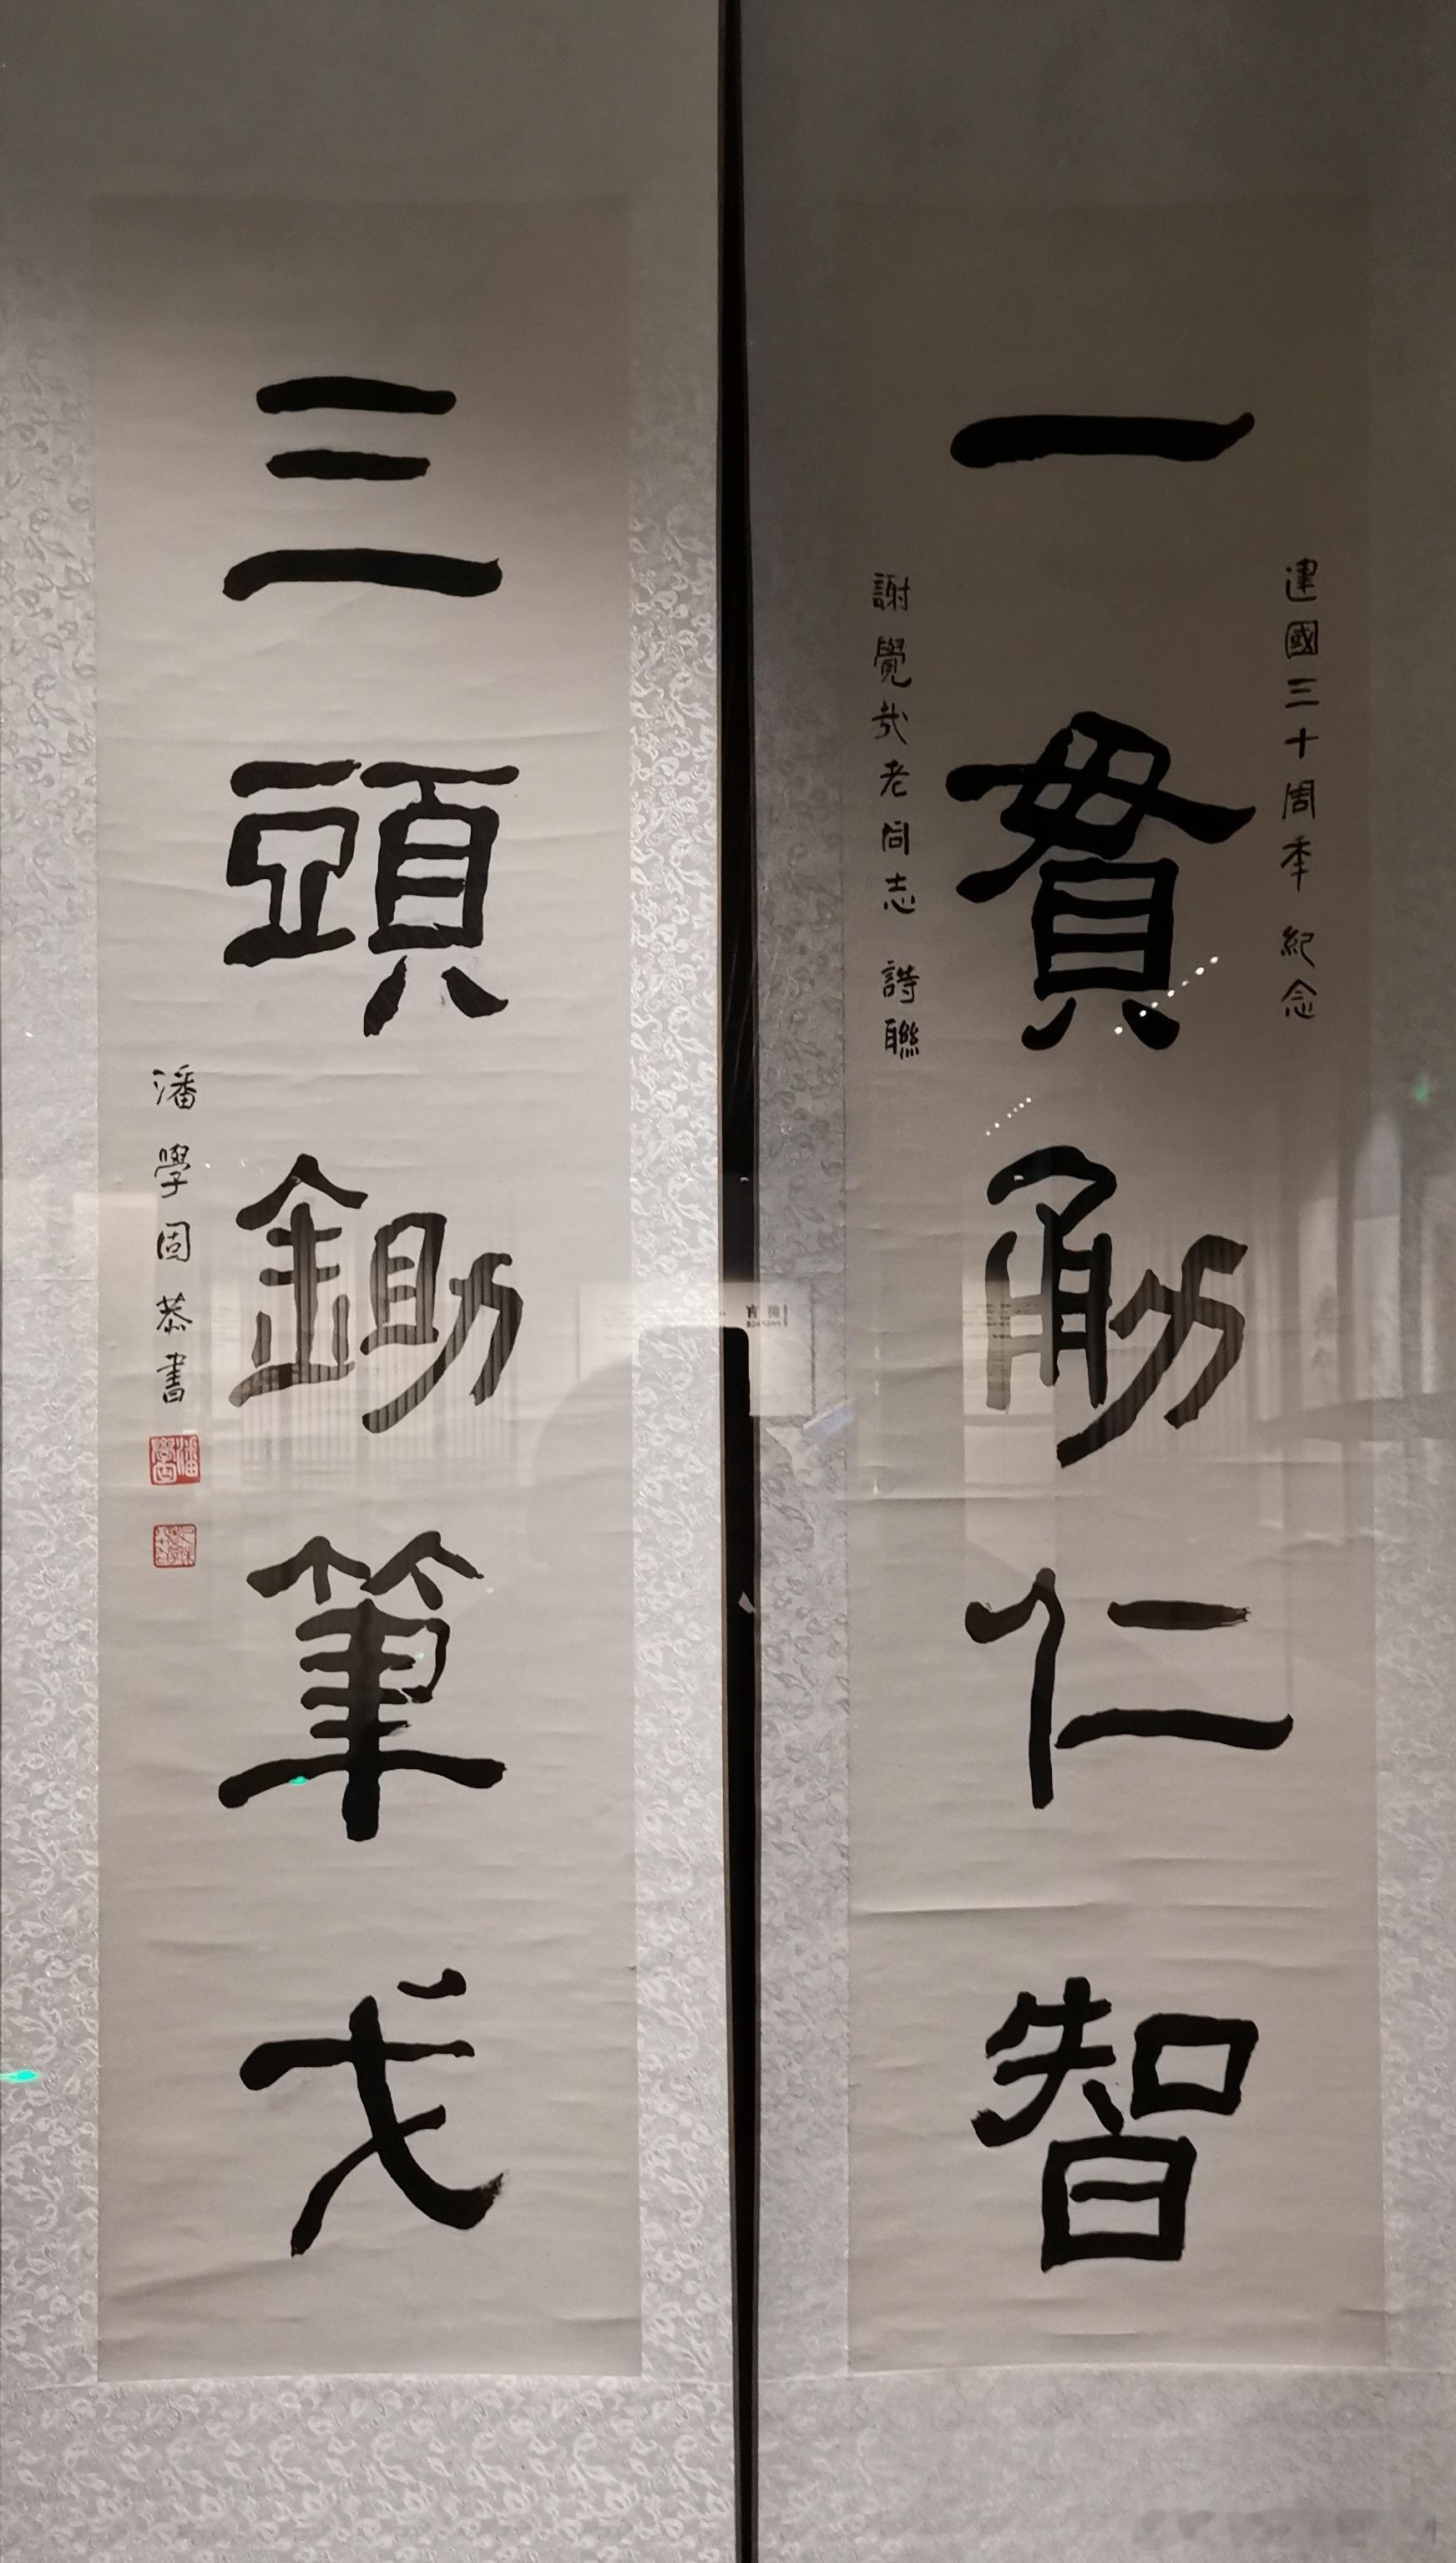 建國三十周年紀念
一貫勇仁智
謝覺哉老同志詩聯
三頭鋤筆戈
潘學固恭書